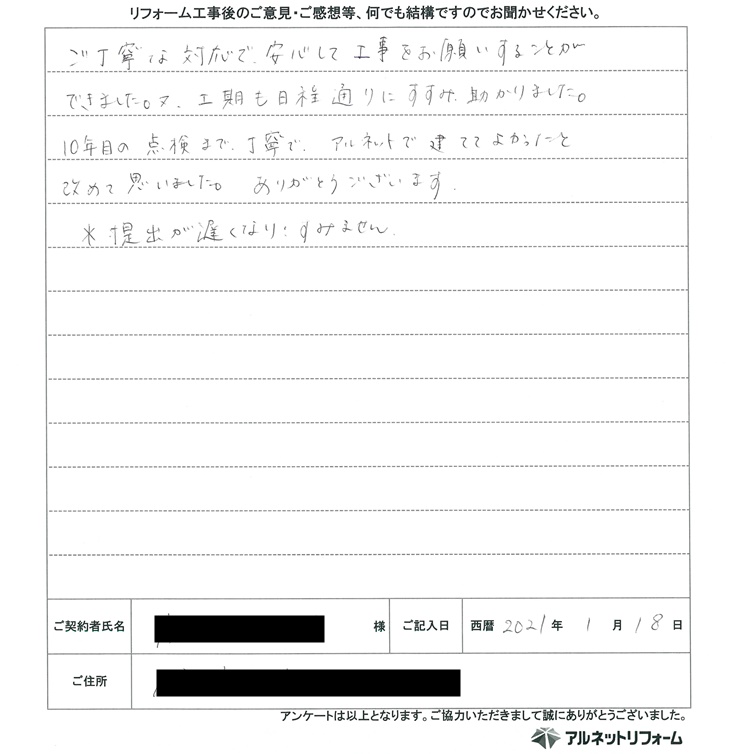 リフォーム工事後のご意見・ご感想等、何でも結構ですのでお聞かせください。
ご丁寧な対応で、安心して工事をお願いすることが
できました。又、工期も日程通りにすすみ、助かりました。
10年目の点検まで、丁寧で、アルネットで建ててよかったこと
改めて思いました。ありがとうございます。
*提出が遅くなり、すみません。
ご契約者氏名 様 ご記入日 西暦 2021年 1月18日
ご住所
アンケートは以上となります。ご協力いただきまして誠にありがとうございました。
アルネットリフォーム